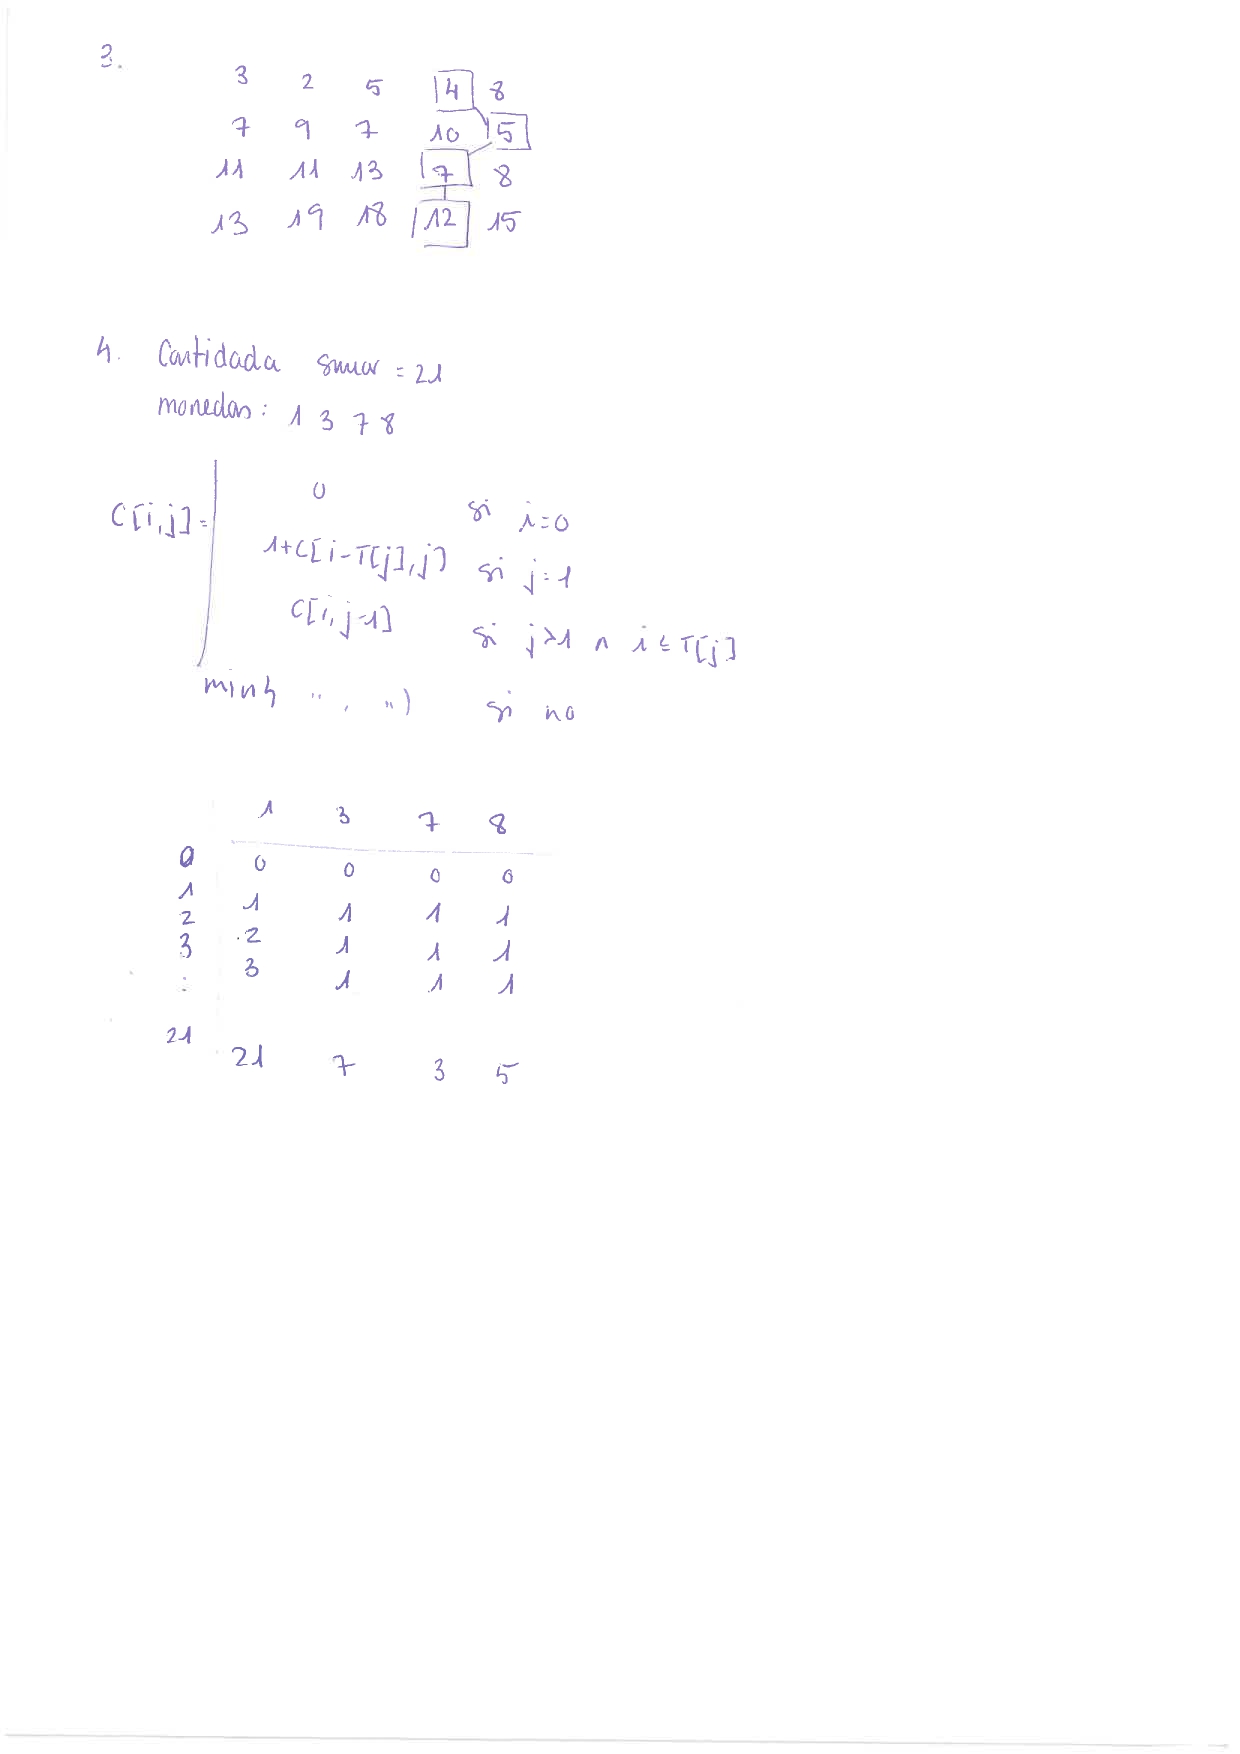 3.
3 2 5 4 8
7 9 7 10 5
11 11 13 7 8
13 19 18 12 15
4. Cantidada sumar = 21
monedas: 1 3 7 8
0 si i=0
C[i,j]= 1+C[i-T[j],j) si j=1
C[i,j-1] si j>1 ∧ i≤T[j]
min{ " , " ) si no
1 3 7 8
0 0 0 0 0
1 1 1 1 1
2 2 1 1 1
3 3 1 1 1
:
21 21 7 3 5